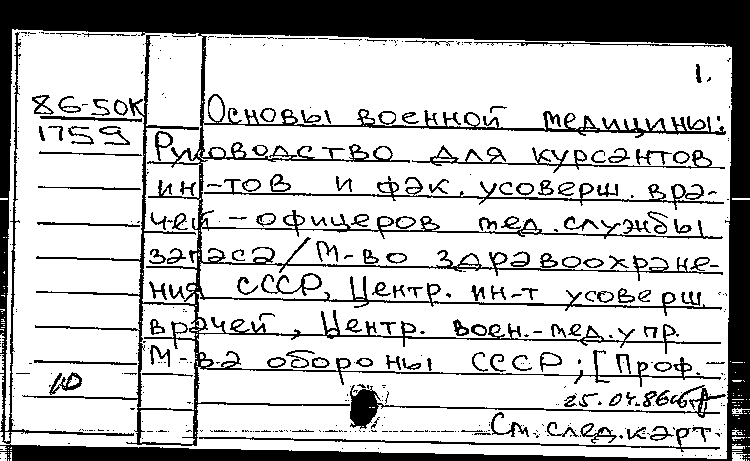 1.
86-50К Основы военной медицины:
1759 Руководство для курсантов
ин-тов и фак. усоверш. вра-
чей-офицеров мед. службы
запаса / М-во здравоохране-
ния СССР, Центр. ин-т усоверш.
врачей, Центр. воен.-мед. упр.
М-ва обороны СССР; [Проф.
25.04.86
См. след. карт.